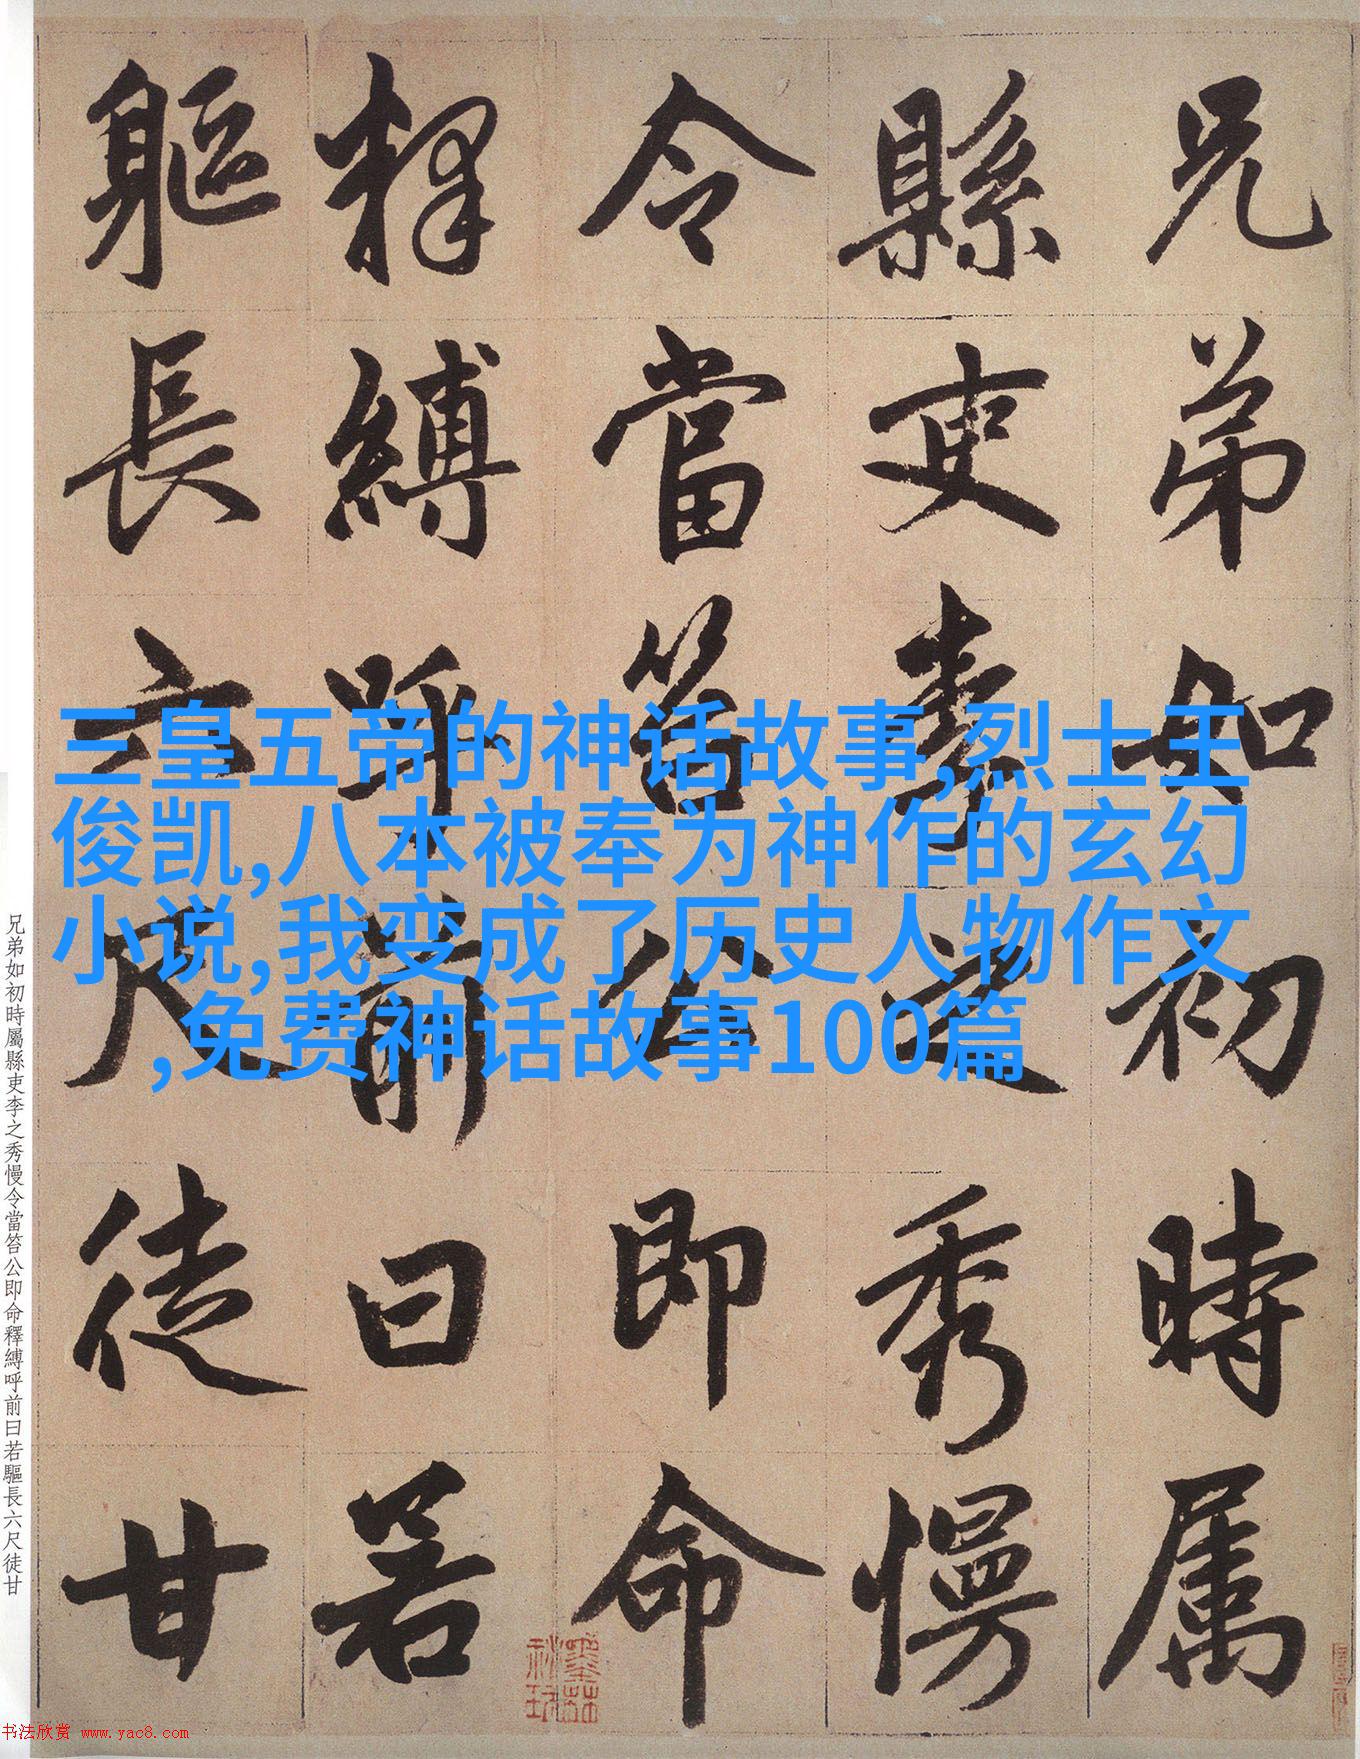 兄弟如初時属
縣吏李之秀慢
令當笞公即命
釋縛呼前曰若
軀長六尺徒甘
三皇五帝的神话故事,烈士王
俊凯,八本被奉为神作的玄幻
小说,我变成了历史人物作文
,免费神话故事100篇
兄弟如初時屬縣吏李之秀慢令當笞公即命釋縛呼前曰若軀長六尺徒甘
书法欣赏 www.yac8.com